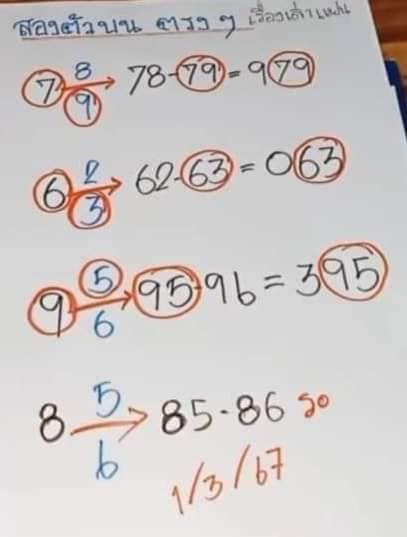 สองตัวบน ตรงๆ เรื่องเก่าแฟน
8
7 → 78-79 = 979
9
2
6 → 62-63 = 063
3
5
9 → 95-96 = 395
6
5
8 → 85-86 รอ
6
1/3/67